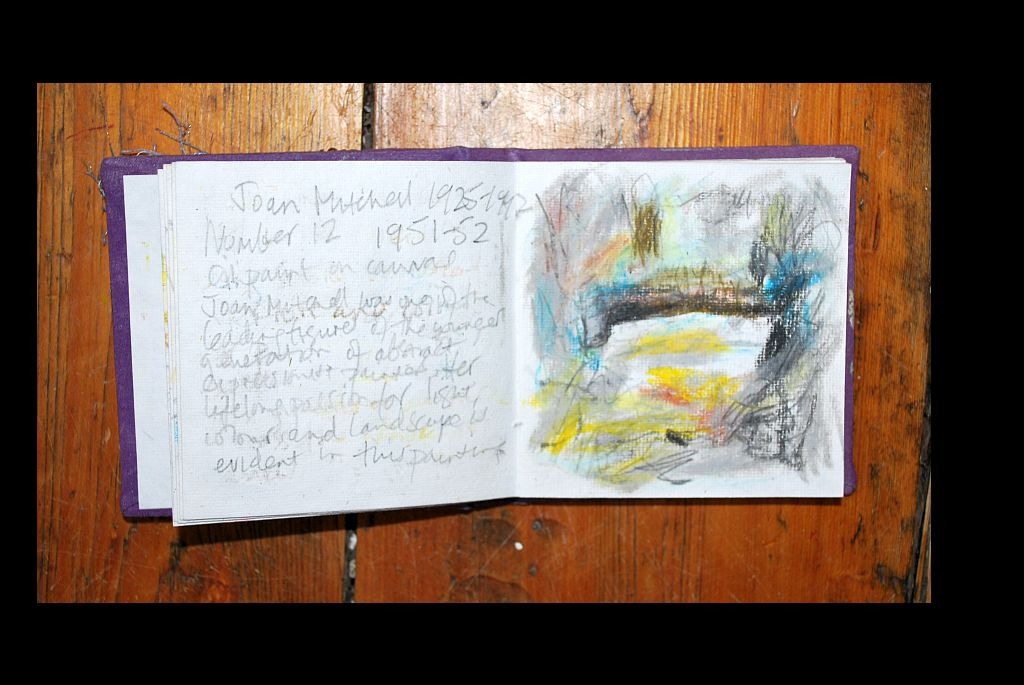 Joan Mitchell 1925-1992
Number 12 1951-52
Oil paint on canvas
Joan Mitchell was one of the
leading figures of the younger
generation of abstract
expressionist painters. Her
lifelong passion for light,
colour and landscape is
evident in this painting